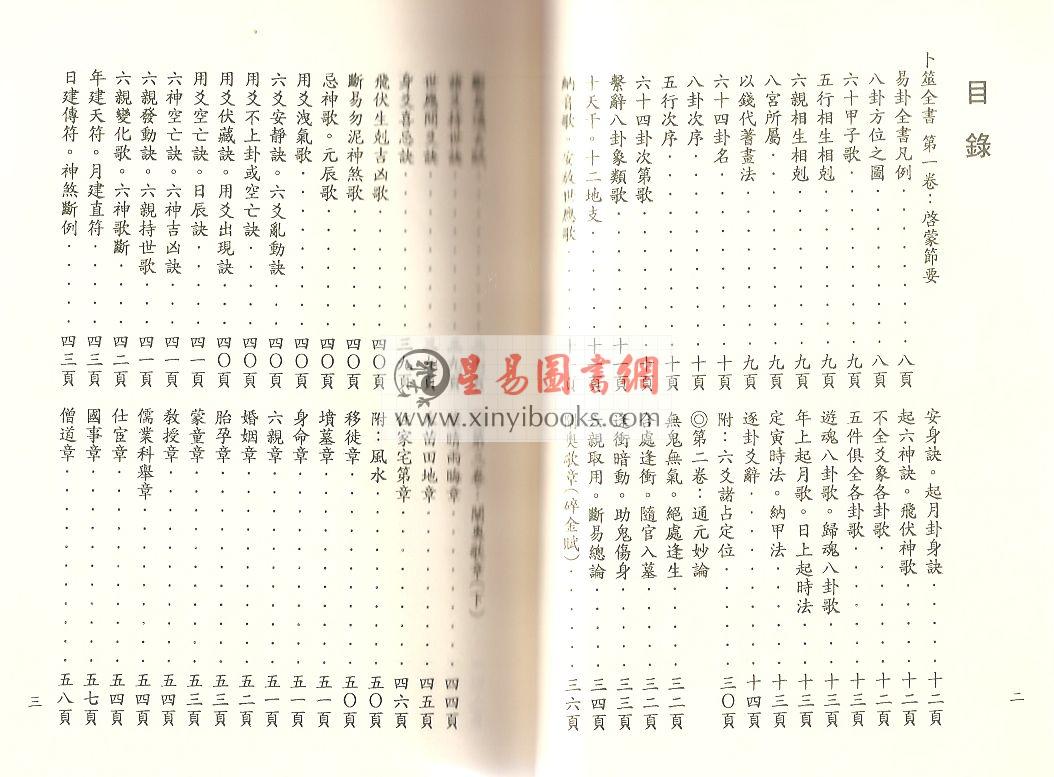 目錄
卜筮全書 第一卷:啓蒙節要
易卦全書凡例……八頁
八卦方位之圖……八頁
六十甲子歌……九頁
五行相生相剋……九頁
六親相生相剋……九頁
八宮所屬……九頁
以錢代蓍畫法……九頁
六十四卦名……十頁
八卦次序……十頁
五行次序……十頁
六十四卦次第歌……十頁
繫辭八卦象類歌……十一頁
十天干。十二地支……十一頁
納音歌。安放世應歌
安身訣。起月卦身訣……十二頁
起六神訣。飛伏神歌……十二頁
不全爻象各卦歌……十二頁
五件俱全各卦歌……十三頁
遊魂八卦歌。歸魂八卦歌……十三頁
年上起月歌。日上起時法……十三頁
定寅時法。納甲法……十三頁
逐卦爻辭……十四頁
附:六爻諸占定位……三〇頁
◎第二卷:通元妙論
無鬼無氣。絕處逢生……三二頁
處逢衝。隨官入墓……三二頁
逢衝暗動。助鬼傷身……三三頁
親取用。斷易總論……三四頁
奧歌章(碎金賦)……三六頁
二
世應間爻訣
身爻喜忌訣
飛伏生剋吉凶歌……四〇頁
斷易勿泥神煞歌……四〇頁
忌神歌。元辰歌……四〇頁
用爻洩氣歌……四〇頁
六爻安靜訣。六爻亂動訣……四〇頁
用爻不上卦或空亡訣……四〇頁
用爻伏藏訣。用爻出現訣……四〇頁
用爻空亡訣。日辰訣……四一頁
六神空亡訣。六神吉凶訣……四一頁
六親發動訣。六親持世歌……四一頁
六親變化歌。六神歌斷……四二頁
年建天符。月建直符……四三頁
日建傳符。神煞斷例……四三頁
闡奧歌章(下)
晴雨晦章……四四頁
苗田地章……四五頁
家宅第章……四六頁
附:風水……五〇頁
移徙章……五〇頁
墳墓章……五一頁
身命章……五一頁
六親章……五一頁
婚姻章……五二頁
胎孕章……五三頁
蒙童章……五三頁
教授章……五四頁
儒業科舉章……五四頁
仕宦章……五四頁
國事章……五七頁
僧道章……五八頁
三
星易圖書網
www.xinyibooks.com